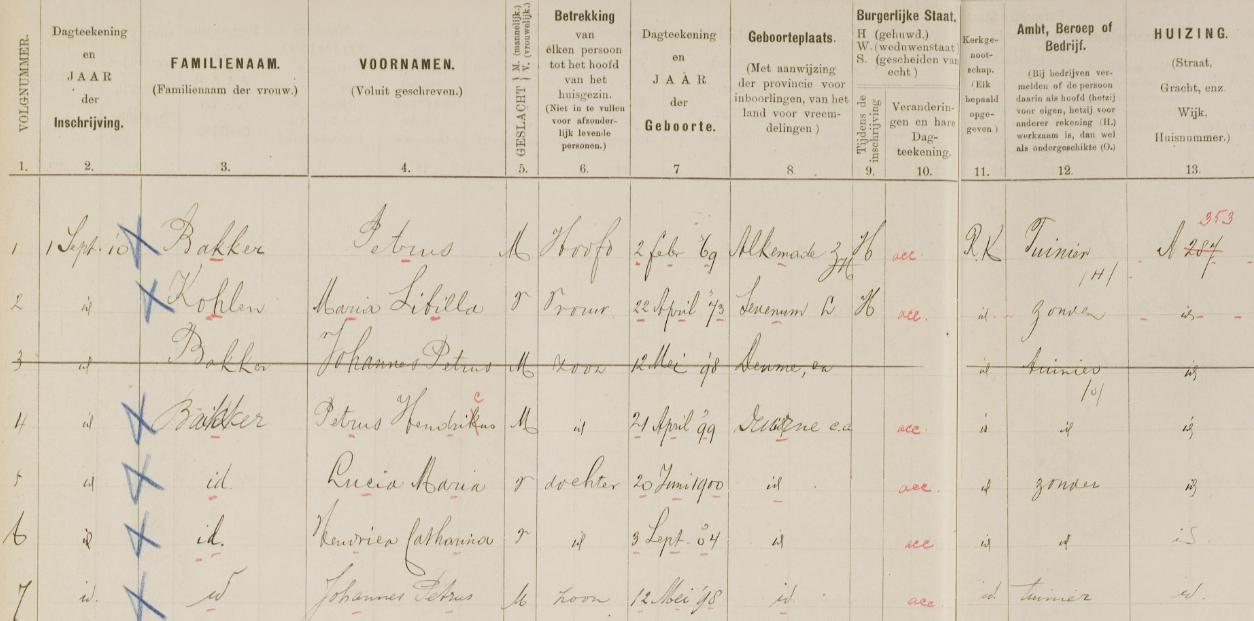 VOLGNUMMER.
Dagteekening
en
JAAR
der
Inschrijving.
FAMILIENAAM.
(Familienaam der vrouw.)
VOORNAMEN.
(Voluit geschreven.)
GESLACHT { M. (mannelijk.) V. (vrouwelijk.)
Betrekking
van
élken persoon
tot het hoofd
van het
huisgezin.
(Niet in te vullen
voor afzonder-
lijk levende
personen.)
Dagteekening
en
JAAR
der
Geboorte.
Geboorteplaats.
(Met aanwijzing
der provincie voor
inboorlingen, van het
land voor vreem-
delingen)
Burgerlijke Staat.
H (gehuwd.)
W. (weduwenstaat
S. (gescheiden van
echt)
Tijdens de
inschrijving
Veranderin-
gen en hare
Dag-
teekening.
Kerkge-
noot-
schap.
(Elk
bepaald
opge-
geven.)
Ambt, Beroep of
Bedrijf.
(Bij bedrijven ver-
melden of de persoon
daarin als hoofd (hetzij
voor eigen, hetzij voor
anderer rekening (H.)
werkzaam is, dan wel
als ondergeschikte (O.)
HUIZING.
(Straat,
Gracht, enz.
Wijk,
Huisnummer.)
1. 2. 3. 4. 5. 6. 7 8 9. 10. 11. 12. 13.
353
1 1 Sept. 10 Bakker Petrus M Hoofd 2 febr 69 Alkemade ZH H acc. R.K Tuinier A 284
/H/
2 id Kohlen Maria Libilla V Vrouw 22 April '73 Sevenum L H acc. id zonder id
3 id Bakker Johannes Petrus M zoon 12 Mei '98 Deurne, ca id tuinier id
/o/
4 id Bakker Petrus Hendricus M id 21 April '99 Deurne c.a acc. id id id
5 id id. Lucia Maria V dochter 20 Juni 1900 id acc. id zonder id
6 id id. Hendrica Catharina V id 3 Sept. 04 id acc id id id.
7 id. id Johannes Petrus M zoon 12 Mei '98 id. acc. id. tuinier id.